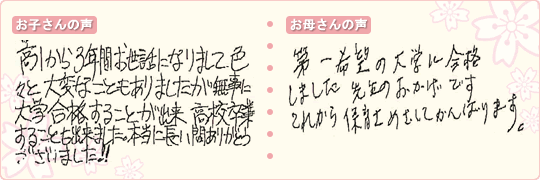 お子さんの声
高1から3年間お世話になりまして、色
々と大変なこともありましたが無事に
大学合格することが出来、高校卒業
することも出来ました。本当に長い間ありがとう
ございました!!
お母さんの声
第一希望の大学に合格
しました 先生のおかげです
これから保育士めざしてがんばります。